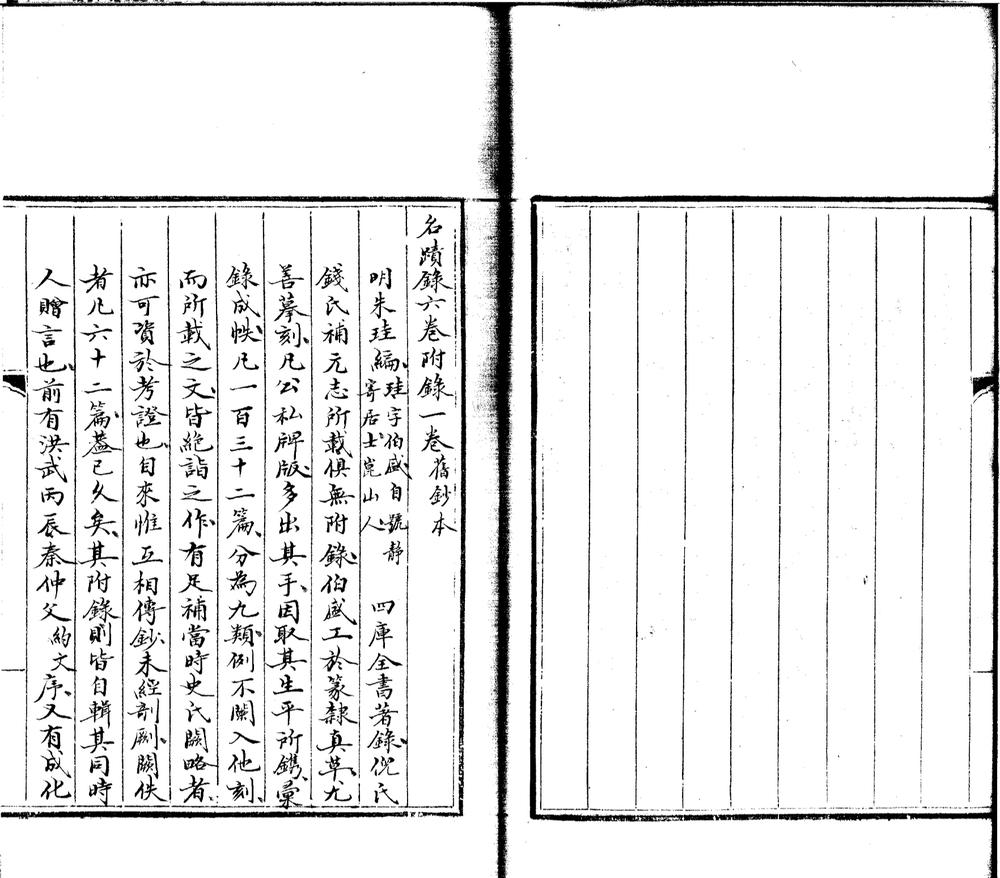 名蹟錄六卷附錄一卷舊鈔本
明朱珪編珪字伯盛自號靜寄居士崑山人四庫全書著錄倪氏
錢氏補元志所載俱無附錄伯盛工於篆隸真草尤
善摹刻凡公私碑版多出其手因取其生平所鐫彙
錄成帙凡一百三十二篇分為九類例不闌入他刻
而所載之文皆絕詣之作有足補當時史氏闕略者
亦可資於考證也自來惟互相傳鈔未經剞劂闕佚
者凡六十二篇蓋已久矣其附錄則皆自輯其同時
人贈言也前有洪武丙辰秦仲父約文序又有成化